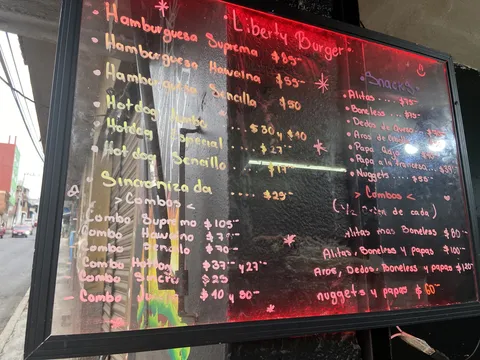 Liberty Burger
• Hamburguesa Suprema $85-
• Hamburguesa Hawaina $55-
• Hamburguesa Sencilla $50
• Hotdog Jumbo .... $30 y $40
Hotdog Especial .... $27-
• Hot dog Sencillo .... $17
• Sincronizada ..... $25-
> Combos <
Combo Supremo $105-
Combo Hawaino
Combo Sencillo $70-
Combo Hotdog $37- y 27-
Combo Sincro $25
- Combo
• Snacks •
• Alitas .... $75-
• Boneless .... $75-
• Dedos de Queso
• Aros de
• Papa
• Papa a la francesa
• Nuggets .... $55-
> Combos <
(1/2 Orden de cada)
Alitas mas Boneless $80-
Alitas, Boneless y papas $100-
Aros, Dedos, Boneless y papas $120-
nuggets y papas $60-